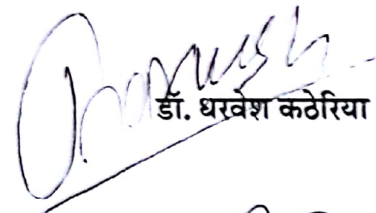 डॉ. धरवेश कठेरिया